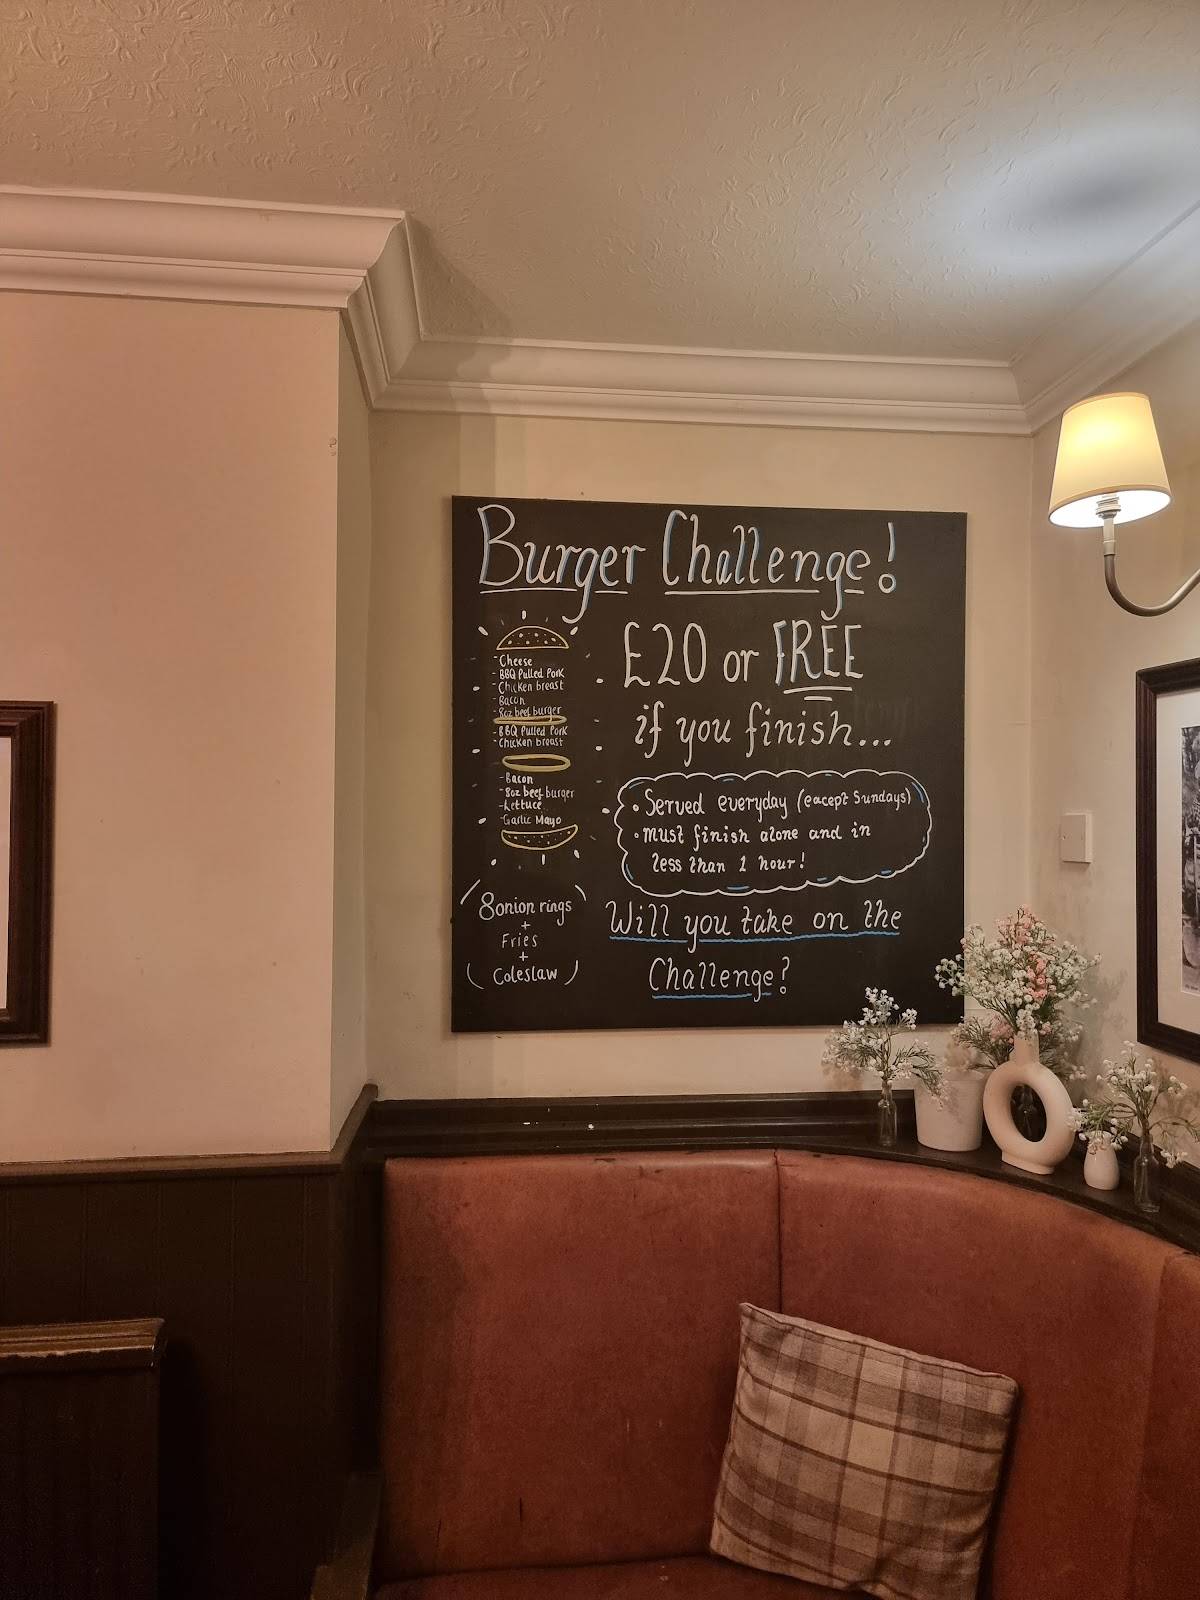 Burger Challenge!
- Cheese
- BBQ Pulled Pork
- Chicken breast
- Bacon
- 8oz beef burger
- BBQ Pulled Pork
- Chicken breast
- Bacon
- 8oz beef burger
- Lettuce
- Garlic Mayo
8 onion rings
+
Fries
+
Coleslaw
£20 or FREE
if you finish...
• Served everyday (except Sundays)
• must finish alone and in
less than 1 hour!
Will you take on the
Challenge?